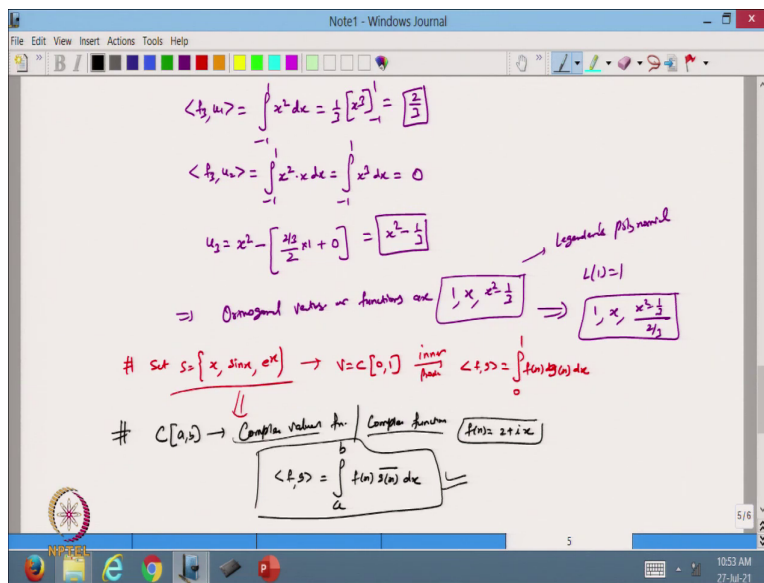 Note1 - Windows Journal
File Edit View Insert Actions Tools Help
<f₃, u₁> = ∫₋₁¹ x² dx = 1/3 [x³]₋₁¹ = 2/3
<f₃, u₂> = ∫₋₁¹ x²·x dx = ∫₋₁¹ x³ dx = 0
u₃ = x² - [(2/3)/2 ×1 + 0] = x² - 1/3
Legendre's polynomial
L(1)=1
⇒ Orthogonal vectors or functions are 1, x, x² - 1/3 ⇒ 1, x, (x² - 1/3)/(2/3)
# Set S={x, sinx, eˣ} → V=C[0,1] inner prod <f,g> = ∫₀¹ f(x) g(x) dx
# C[a,b] → Complex values fn. | Complex function f(x)= 2+ix
<f,g> = ∫ₐᵇ f(x) \overline{g(x)} dx
NPTEL
5/6
5
10:53 AM
27-Jul-21